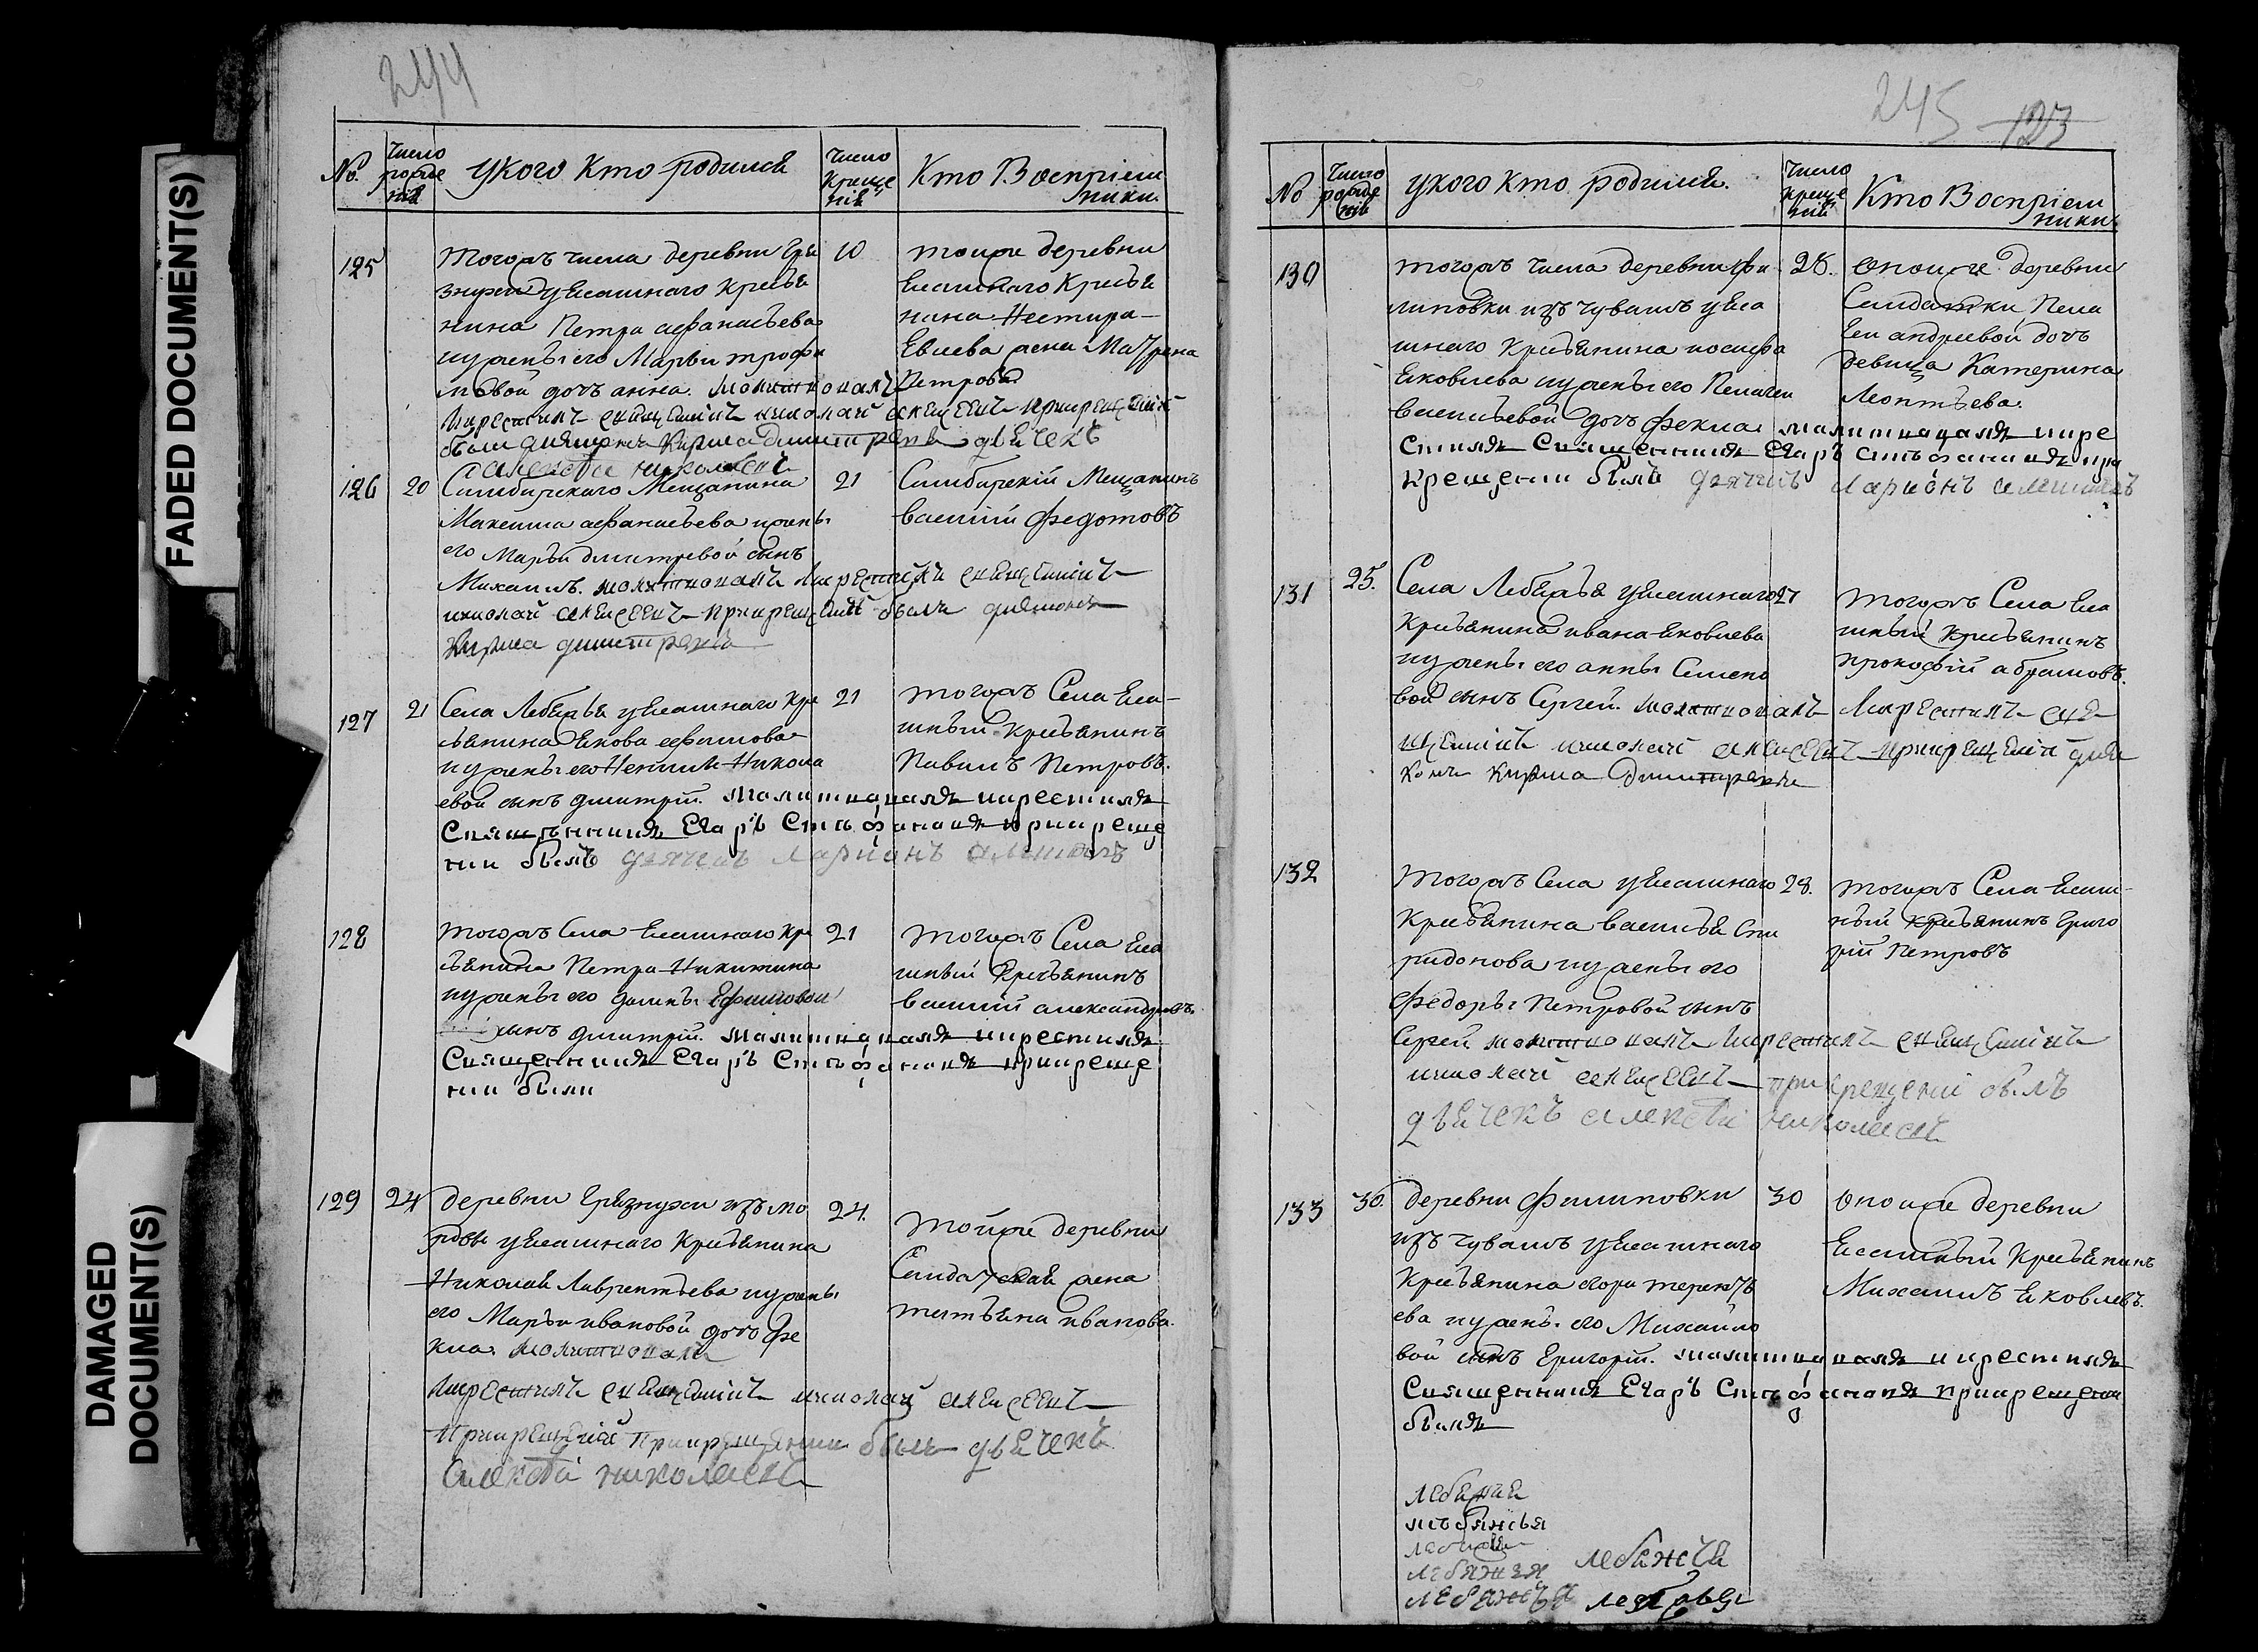 FADED DOCUMENT(S)
DAMAGED
DOCUMENT(S)
244
No.
Число рожде нiя
у кого кто родился
Число креще нiя
Кто Воспрiем ники.
125
10
тогожъ числа деревни Гря
знухи уясашнаго кресья
нина Петра афанасьева
и жены его Марьи трофи
мовой дочь анна. молитвовалъ
и крестилъ священникъ николай алексеевъ при крещенiи
были диаконъ Кирила димитревъ дьячекъ
алексей николаевъ
тойже деревни
Ясашнаго Кресья
нина Нестира
Евлева жена Матрена
Петрова
126
20
21
Симбирскаго Мещанина
Максима афанасьева и жены
его Марьи дмитревой сынъ
Михаилъ. молитвовалъ и крестилъ священникъ
николай алексеевъ при крещенiи былъ диаконъ
Кирила димитревъ
Симбирскiй Мещанинъ
василiй федотовъ
127
21
21
Села Лебяжья уясашнаго кре
сьянина Якова ефимова
и жены его Ненилы Никола
евой сынъ дмитрiй. молитвовалъ и крестилъ
Священникъ Егаръ Стефановъ при креще
нии былъ дьячекъ Ларионъ
тогожъ Села Яса-
шный кресьянинъ
Павилъ Петровъ.
128
21
тогожъ Села Ясашнаго кре
сьянина Петра Никитина
и жены его домны Ефимовой
сынъ дмитрiй. молитвовалъ и крестилъ
Священникъ Егаръ Стефановъ при креще
нии были
тогожъ Села Яса
шный Кресьянинъ
василiй александровъ.
129
24
24.
деревни Грязнухи изъ мо
рдвы уясашнаго Кресьянина
Николая Лаврентьева и жены
его Марьи ивановой дочь Фе
кла. молитвовалъ
и крестилъ священникъ николай алексеевъ
при крещенiи при крещении былъ дьячекъ
алексей николаевъ
тойже деревни
Салдатская жена
татьяна иванова.
245
123
No
Число рожде нiя
у кого кто родился.
Число креще нiй
Кто Воспрiем ники.
130
26.
тогожъ числа деревни фи
липовки изъ чувашъ уяса
шнаго Кресьянина иосифа
Яковлева и жены его Пелагеи
васильевой дочь фекла. молитвовалъ и кре
стилъ Священникъ Егаръ Стефановъ при
крещении былъ дьячекъ Ларионъ
оной же деревни
Салдатки Пела
геи андреевой дочь
девица Катерина
Леонтьева.
131
25.
27
Села Лебяжья уясашнаго
Кресьянина ивана Яковлева
и жены его анны Семено
вой сынъ Сергей. молитвовалъ и крестилъ свя
щенникъ николай алексеевъ при крещенiи диа
конъ Кирила Димитревъ
тогожъ Села Яса
шный кресьянинъ
прокофiй абрамовъ.
132
28.
тогожъ Села уясашнаго
Кресьянина василья Спи
ридонова и жены его
федоры Петровой сынъ
Сергей молитвовалъ и крестилъ священникъ
николай алексеевъ при крещенiи былъ
дьячекъ алексей николаевъ
тогожъ Села Ясаш-
ный кресьянинъ Григо
рiй Петровъ
133
30.
30
деревни Филиповки
изъ чувашъ уясашнаго
Кресьянина егора терентье
ева и жены его Михайло
вой сынъ Григорiй. молитвовалъ и крестилъ
Священникъ Егаръ Стефановъ при крещении
былъ
оной же деревни
Ясашный Кресьянинъ
Михаилъ Яковлевъ.
лебяжья
лебяжья
лебяжья
лебяжья
лебяжья